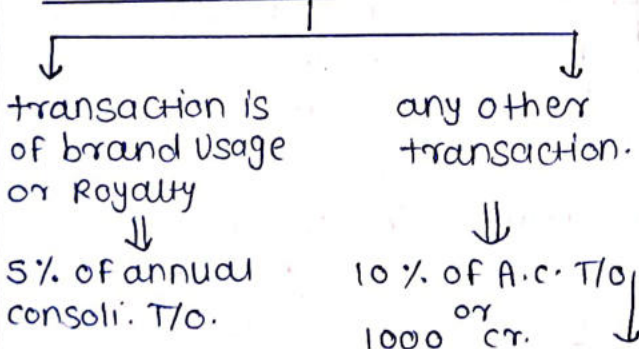 transaction is
of brand usage
or Royalty
5% of annual
consoli. T/O.
any other
transaction.
10 % of A.c. T/O
or
1000 cr.